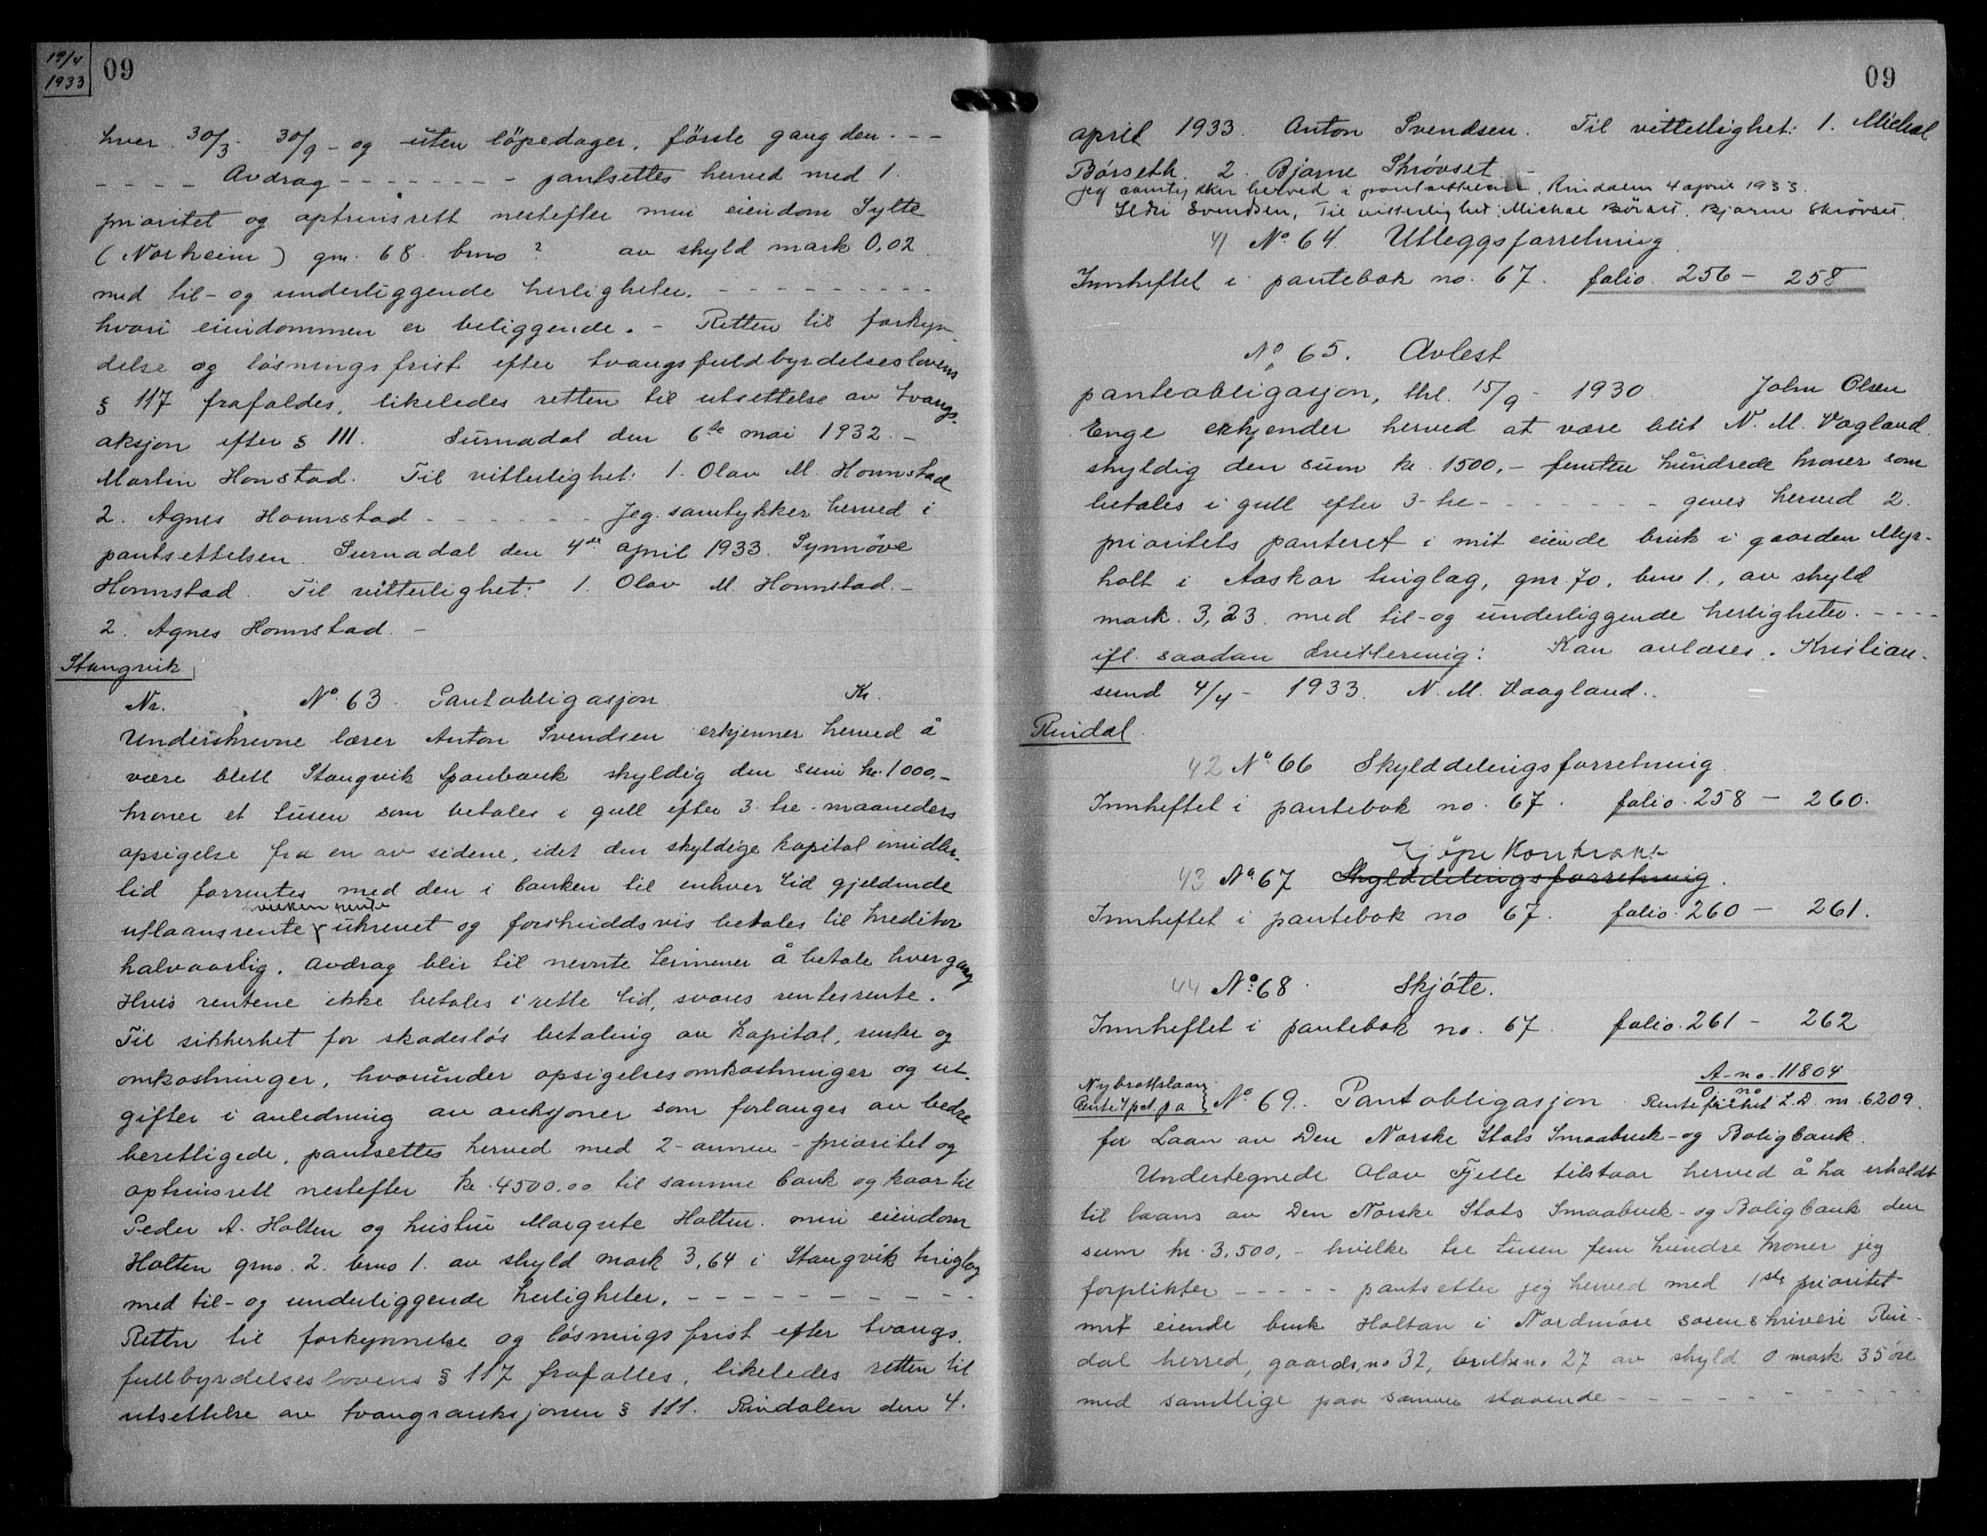 19/4
1933
09
hver 30/3 - 30/9 - og uten löpedager, förste gang den - - -
- - - - Avdrag - - - - - - - pantsettes herved med 1.
prioritet og optrinsrett nestefter min eiendom Sylte
(Norheim) gnr. 68. bno ? av skyld mark 0,02
med til- og underliggende herligheter. - - - - - - - - -
hvori eiendommen er beliggende. - Retten til forkyn-
delse og løsningsfrist efter tvangsfuldbyrdelseslovens
§ 117 frafaldes, likeledes retten til utsettelse av tvangs-
aksjon efter § 111. Surnadal den 6te mai 1932. -
Martin Honstad. Til vitterlighet: 1. Olav M. Honnstad
2. Agnes Honnstad - - - - - - Jeg samtykker herved i
pantsettelsen. Surnadal den 4de april 1933. Synnöve
Honnstad. Til vitterlighet: 1. Olav M. Honnstad. -
2. Agnes Honnstad. -
Stangvik
Nr. No. 63. Pantobligasjon Kr.
Underskrevne lærer Anton Svendsen erkjenner herved å
være blitt Stangvik Sparebank skyldig den sum kr. 1000,-
kroner et tusen som betales i gull efter 3 - tre - maaneders
opsigelse fra en av sidene, idet den skyldige kapital imidler-
tid forrentes med den i banken til enhver tid gjeldende
hvilken rente
utlaansrente ukrevet og forskuddsvis betales til kreditor
halvaarlig. Avdrag blir til nevnte terminer å betale hver gang
Hvis rentene ikke betales i rette tid, svares rentesrente.
Til sikkerhet for skadesløs betaling av kapital, renter og
omkostninger, hvorunder opsigelsesomkostninger og ut-
gifter i anledning av auksjoner som forlanges av bedre
berettigede, pantsettes herved med 2 - annen - prioritet og
optrinsrett nestefter kr. 4500.00 til samme bank og kaar til
Peder A. Holten og hustru Margrete Holten. min eiendom
Holten grno. 2. brno 1. av skyld mark 3,64 i Stangvik tinglag
med til- og underliggende herligheter. - - - - - - - - - -
Retten til forkynnelse og løsningsfrist efter tvangs-
fullbyrdelseslovens § 117 frafalles, likeledes retten til
utsettelse av tvangsauksjonen § 111. Rindalen den 4.
09
april 1933. Anton Svendsen. Til vitterlighet: 1. Michal
Børseth. 2. Bjarne Skrövset
Jeg samtykker herved i pantsettelsen, Rindalen 4 april 1933.
Svendsen, Til vitterlighet: Michal Børset. Bjarne Skrövset.
41 No. 64. Utleggsforretning
Innheftet i pantebok no. 67. folio. 256 - 258
No 65. Avlest
panteobligasjon, thl. 15/9 - 1930 John Olsen
Enge erkjender herved at være blit N. M. Vagland
skyldig den sum kr. 1500,- femten hundrede kroner som
betales i gull efter 3 - tre - - - - - - - - gives herved 2.
prioritets panteret i mit eiende bruk i gaarden Myr-
holt i Aaskar tinglag, gnr 70, bnr 1., av skyld
mark. 3,23. med til- og underliggende herligheter. - - - -
ifl. saadan kvittering: Kan avlæses. Kristian-
sund 4/4 - 1933. N. M. Vaagland..
Rindal
42 No 66 Skylddelingsforretning.
Innheftet i pantebok no. 67. folio. 258 - 260.
Kjöpe Kontrakt
43 No 67 Skylddelingsforretning.
Innheftet i pantebok no 67. folio. 260 - 261.
44 No. 68. Skjøte.
Innheftet i pantebok no. 67. folio. 261 - 262
A-no. 11804
O. no
Nybrottslaan
Rente 4 pct. p a } No 69. Pantobligasjon Rentefrihet L.D. nr. 6209.
for Laan av Den Norske Stats Smaabruk- og Boligbank.
Undertegnede Olav Fjelle tilstaar herved å ha erholdt
til laans av Den Norske Stats Smaabruk- og Boligbank den
sum kr. 3,500,- hvilke tre tusen fem hundre kroner jeg
forplikter - - - - - pantsetter jeg herved med 1ste prioritet
mit eiende bruk Holtan i Nordmöre sorenskriveri Rin-
dal herred, gaards.no 32, bruks.no. 27 av skyld 0 mark 35 öre
med samtlige paa samme staaende - - - - - - - - - - -